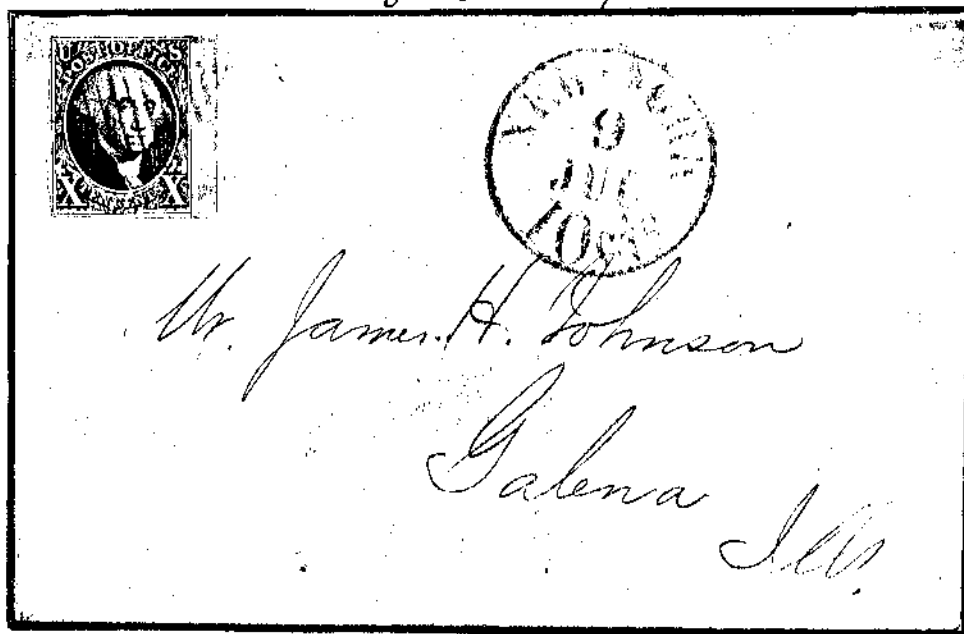 U S
POST OFFICE
X CENTS X
NEW-YORK
9
JUL
10 cts
Mr. James. H. Johnson
Galena
Ill.